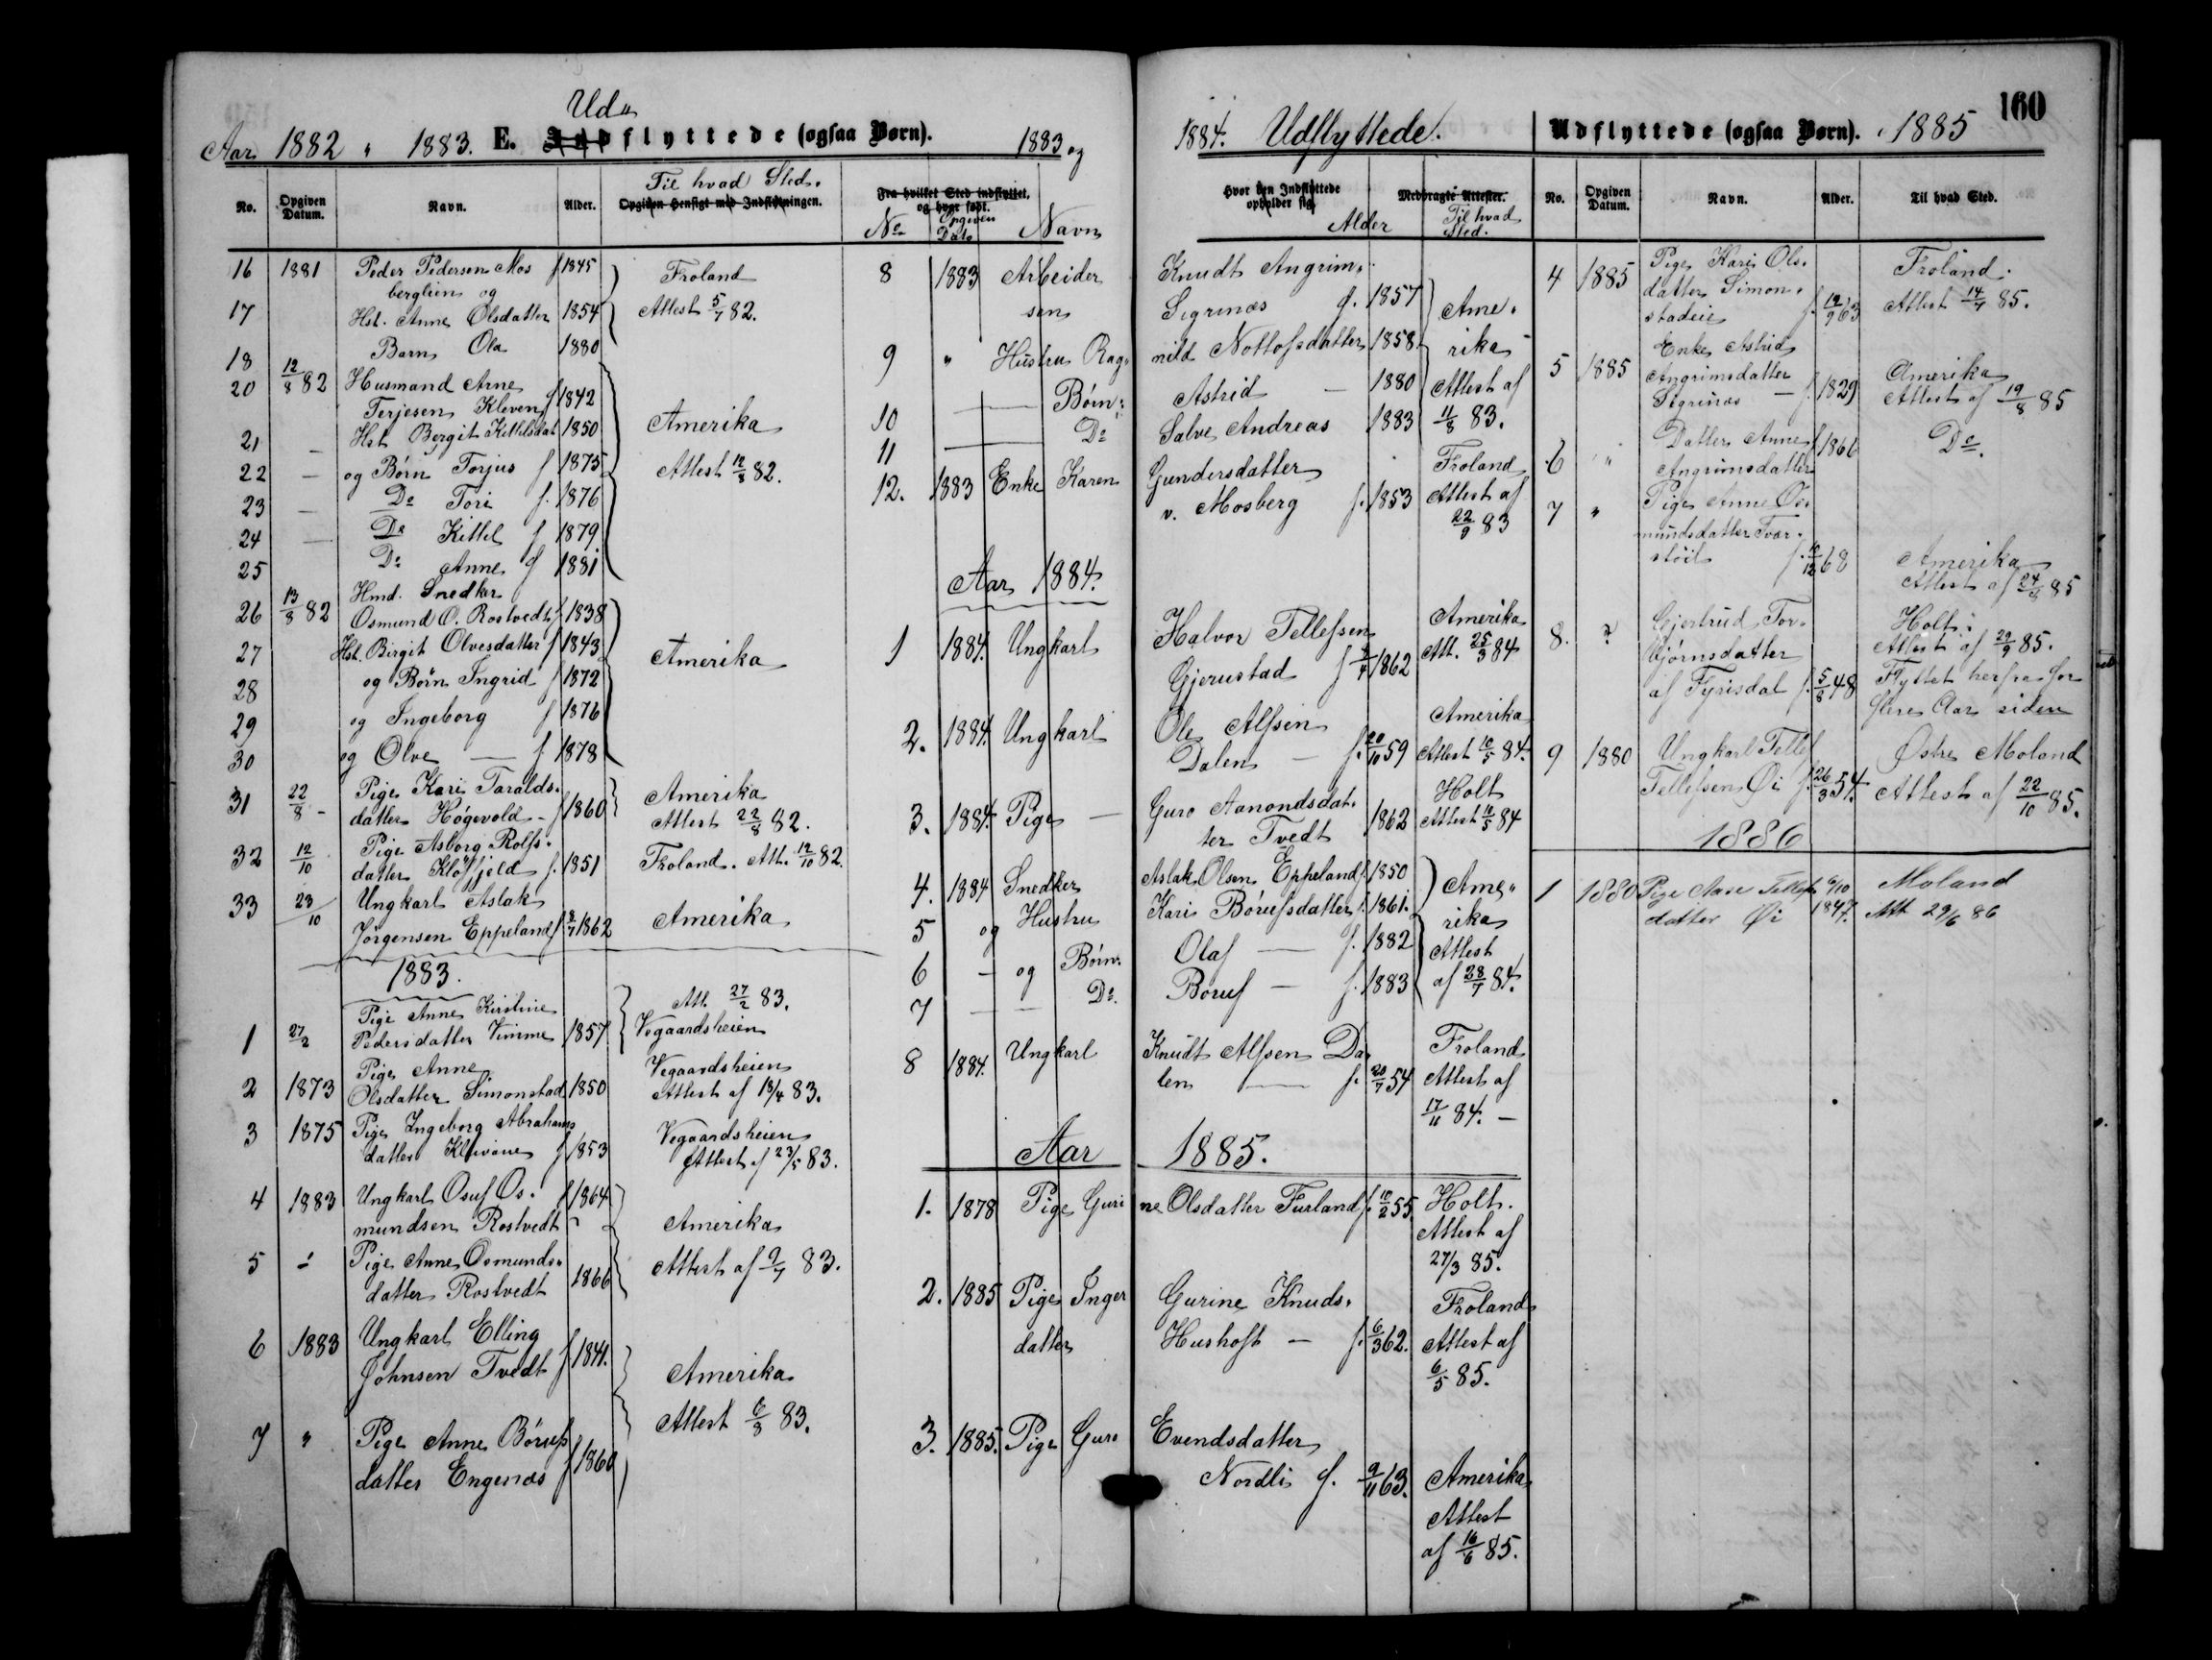 Ud
Aar 1882 „ 1883. E. Indflyttede (ogsaa Børn). 1883 og
Til hvad Sted.
No. Opgiven Datum. Navn. Alder. Opgiven Hensigt med Indflytningen. Fra hvilket Sted indflyttet, og hvor født.
No Opgiven Dato Navn
16 1881 Peder Pedersen Mos f 1845 Froland
berglien og
17 Hst. Anne Olsdatter 1854 Attest 5/7 82.
18 Barn Ola 1880
20 12/8 82 Husmand Arne
Terjesen Kleven f 1842
21 – Hst Bergit Kittilsdat 1850 Amerika
22 – og Børn Torjus f 1875 Attest 12/8 82.
23 – Do Tori f. 1876
24 – Do Kittel f 1879
25 Do Anne f 1881
Hmd. Snedker
26 13/8 82 Osmund O. Rostvedt f 1838
27 Hst. Birgit Olvesdatter f 1843 Amerika
28 og Børn Ingrid f 1872
29 og Ingeborg f 1876
30 og Olve — f 1878
31 22/8 - Pige Kari Taralds-
datter Høgevold - f 1860 Amerika
Attest 22/8 82.
32 12/10 Pige Asborg Rolfs-
datter Kløffjeld f. 1851 Froland. Att. 12/10 82.
33 23/10 Ungkarl Aslak
Jørgensen Eppeland f 1862 Amerika
1883.
1 27/2 Pige Anne Kirstine
Pedersdatter Vimme 1857 Att. 27/2 83.
Vegaardsheien
2 1873 Pige Anne
Olsdatter Simonstad 1850 Vegaardsheien
Attest af 13/4 83.
3 1875 Pige Ingeborg Abrahams
datter f 1853 Vegaardsheien
Attest af 23/5 83.
4 1883 Ungkarl Osuf Os- f 1864
mundsen Rostvedt Amerika
5 Pige Anne Osmunds-
datter Rostvedt 1866 Attest af 9/7 83.
6 1883 Ungkarl Elling
Johnsen Tvedt f 1841. Amerika
Attest 6/8 83.
7 " Pige Anne Børufs
datter Engenæs f 1860
8 1883 Arbeider Knudt Angrim-
sen Sigrinæs f. 1857 Ame-
9 " Hustru Rag- nild Nottolfsdatter 1858 rika
10 Børn: Astrid — 1880 Attest af
11 Do Salve Andreas 1883 11/8 83.
12. 1883 Enke Karen Gundersdatter Froland
v. Mosberg f. 1853 Attest af
22/9 83
Aar 1884.
1 1884. Ungkarl Halvor Tellefsen Amerika
Gjerustad f 1862 Att. 25/3 84
2. 1884. Ungkarl Ole Alfsen Amerika
Dalen — f. 20/10 59 Attest 10/5 84.
3. 1884. Pige — Guro Aanondsdat- Holt
ter Tvedt 1862 Attest 10/5 84
4. 1884 Snedker Aslak Olsen Eppeland f. 1850 Ame-
5 og Hustru Kari Børufsdatter f. 1861. rika
6 – og Børn: Olaf — f. 1882 Attest
7 — Do. Boruf — f. 1883 af 28/7 84.
8 1884. Ungkarl Knudt Alfsen Da Froland
len — f. 20/7 54 Attest af
17/11 84. –
Aar 1885.
1. 1878 Pige Guri ne Olsdatter Furland f. 10/2 55 Holt.
Attest af
27/3 85.
2. 1885 Pige Inger Gurine Knuds- Froland
datter Hushoft — f. 6/3 62. Attest af
6/5 85.
3. 1885. Pige Guro Evendsdatter
Nordli f. 9/11 63. Amerika
Attest
af 16/6 85.
1884. Udflyttede. Udflyttede (ogsaa Børn). 1885 160
Hvor den Indflyttede opholder sig. Medbragte Attester. No. Opgiven Datum. Navn. Alder. Til hvad Sted.
Alder Til hvad Sted.
4 1885 Pige Kari Ols- Froland.
datter Simon-
stadeie f. 19/9 63 Attest 14/7 85.
5 1885 Enke Astrid
Angrimsdatter Amerika
Sigrinæs — f. 1829 Attest af 19/8 85
6 " Datter Anne f 1866 Do.
Angrimsdatter
7 " Pige Anne Os-
mundsdatter Tvar-
støil f. 10/12 68 Amerika
Attest af 24/8 85
8. ? Gjertrud Tor- Holt.
bjørnsdatter Attest af 29/9 85.
af Fyrisdal f. 5/8 48 Flyttet herfra for
flere Aar siden
9 1880 Ungkarl Tellef Østre Moland
Tellefsen Øi f. 26/3 54. Attest af 22/10 85.
1886
1 1880 Pige Aase Tellefs 6/10 Moland
datter Øi 1847. Att 29/6 86